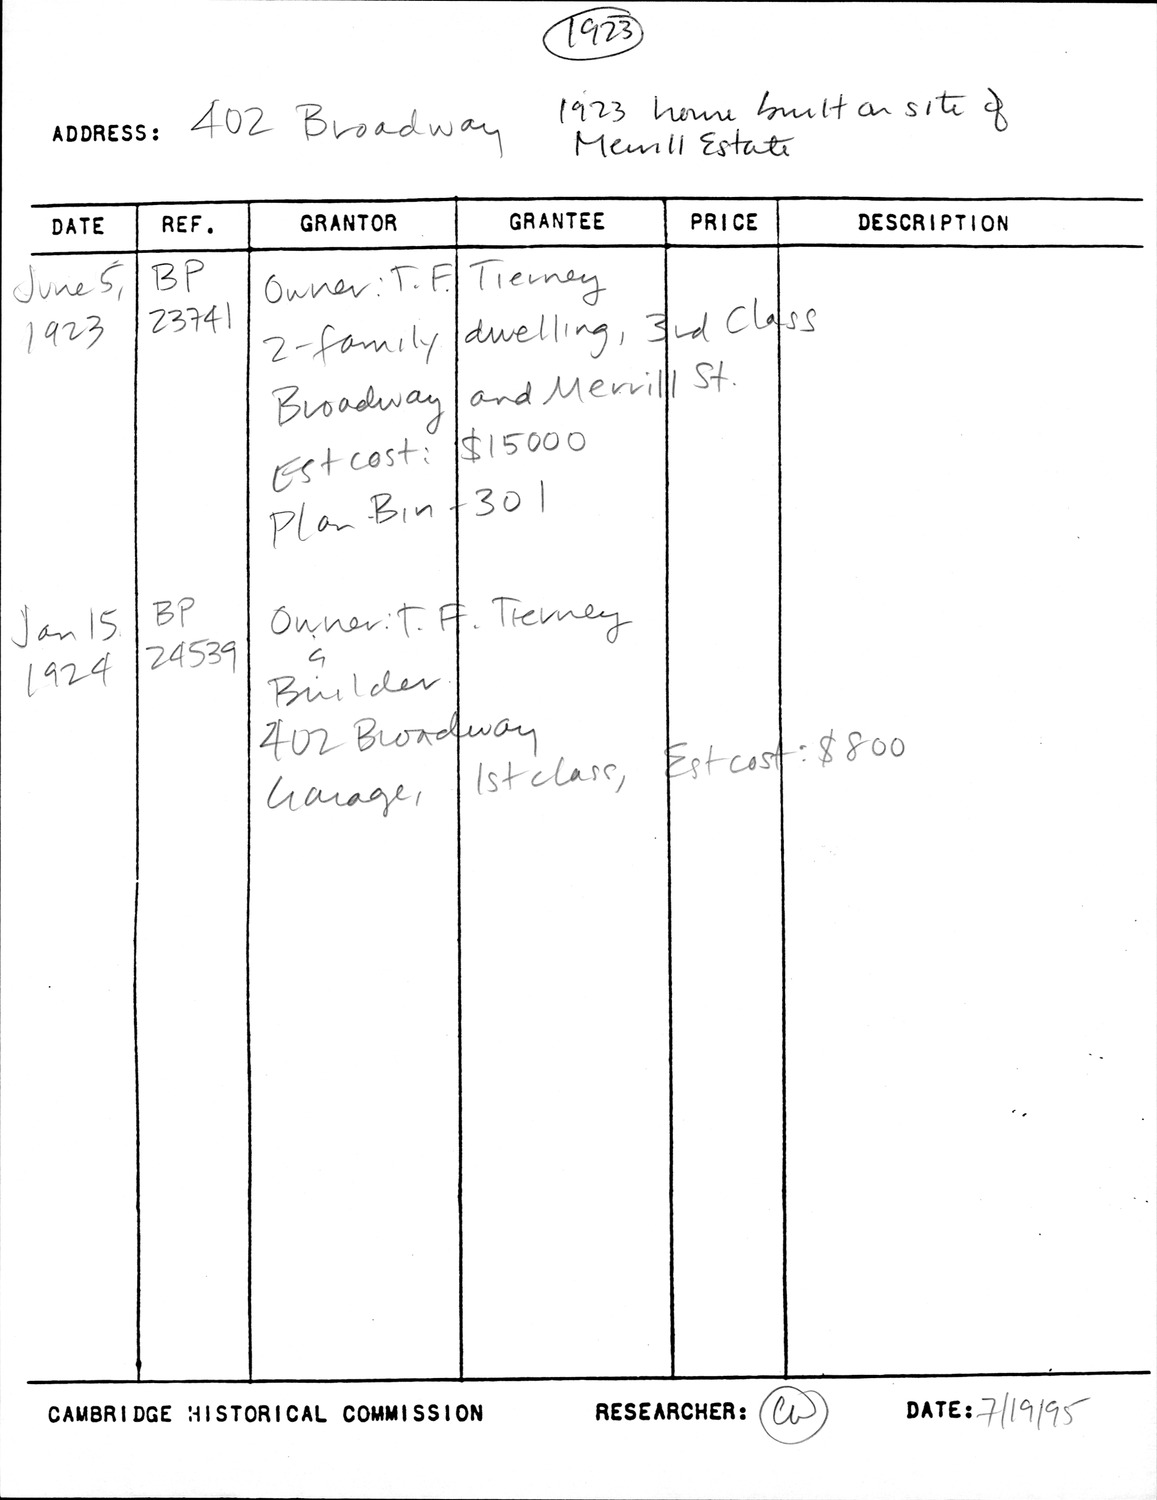 1923
ADDRESS: 402 Broadway 1923 home built on site of
Merrill Estate
DATE REF. GRANTOR GRANTEE PRICE DESCRIPTION
June 5, BP Owner: T. F. Tierney
1923 23741 2-family dwelling, 3rd Class
Broadway and Merrill St.
Est cost: $15000
Plan Bin - 301
Jan 15 BP Owner: T. F. Tierney
1924 24539 &
Builder
402 Broadway
Garage, 1st class, Est cost: $800
CAMBRIDGE HISTORICAL COMMISSION RESEARCHER: CW DATE: 7/19/95